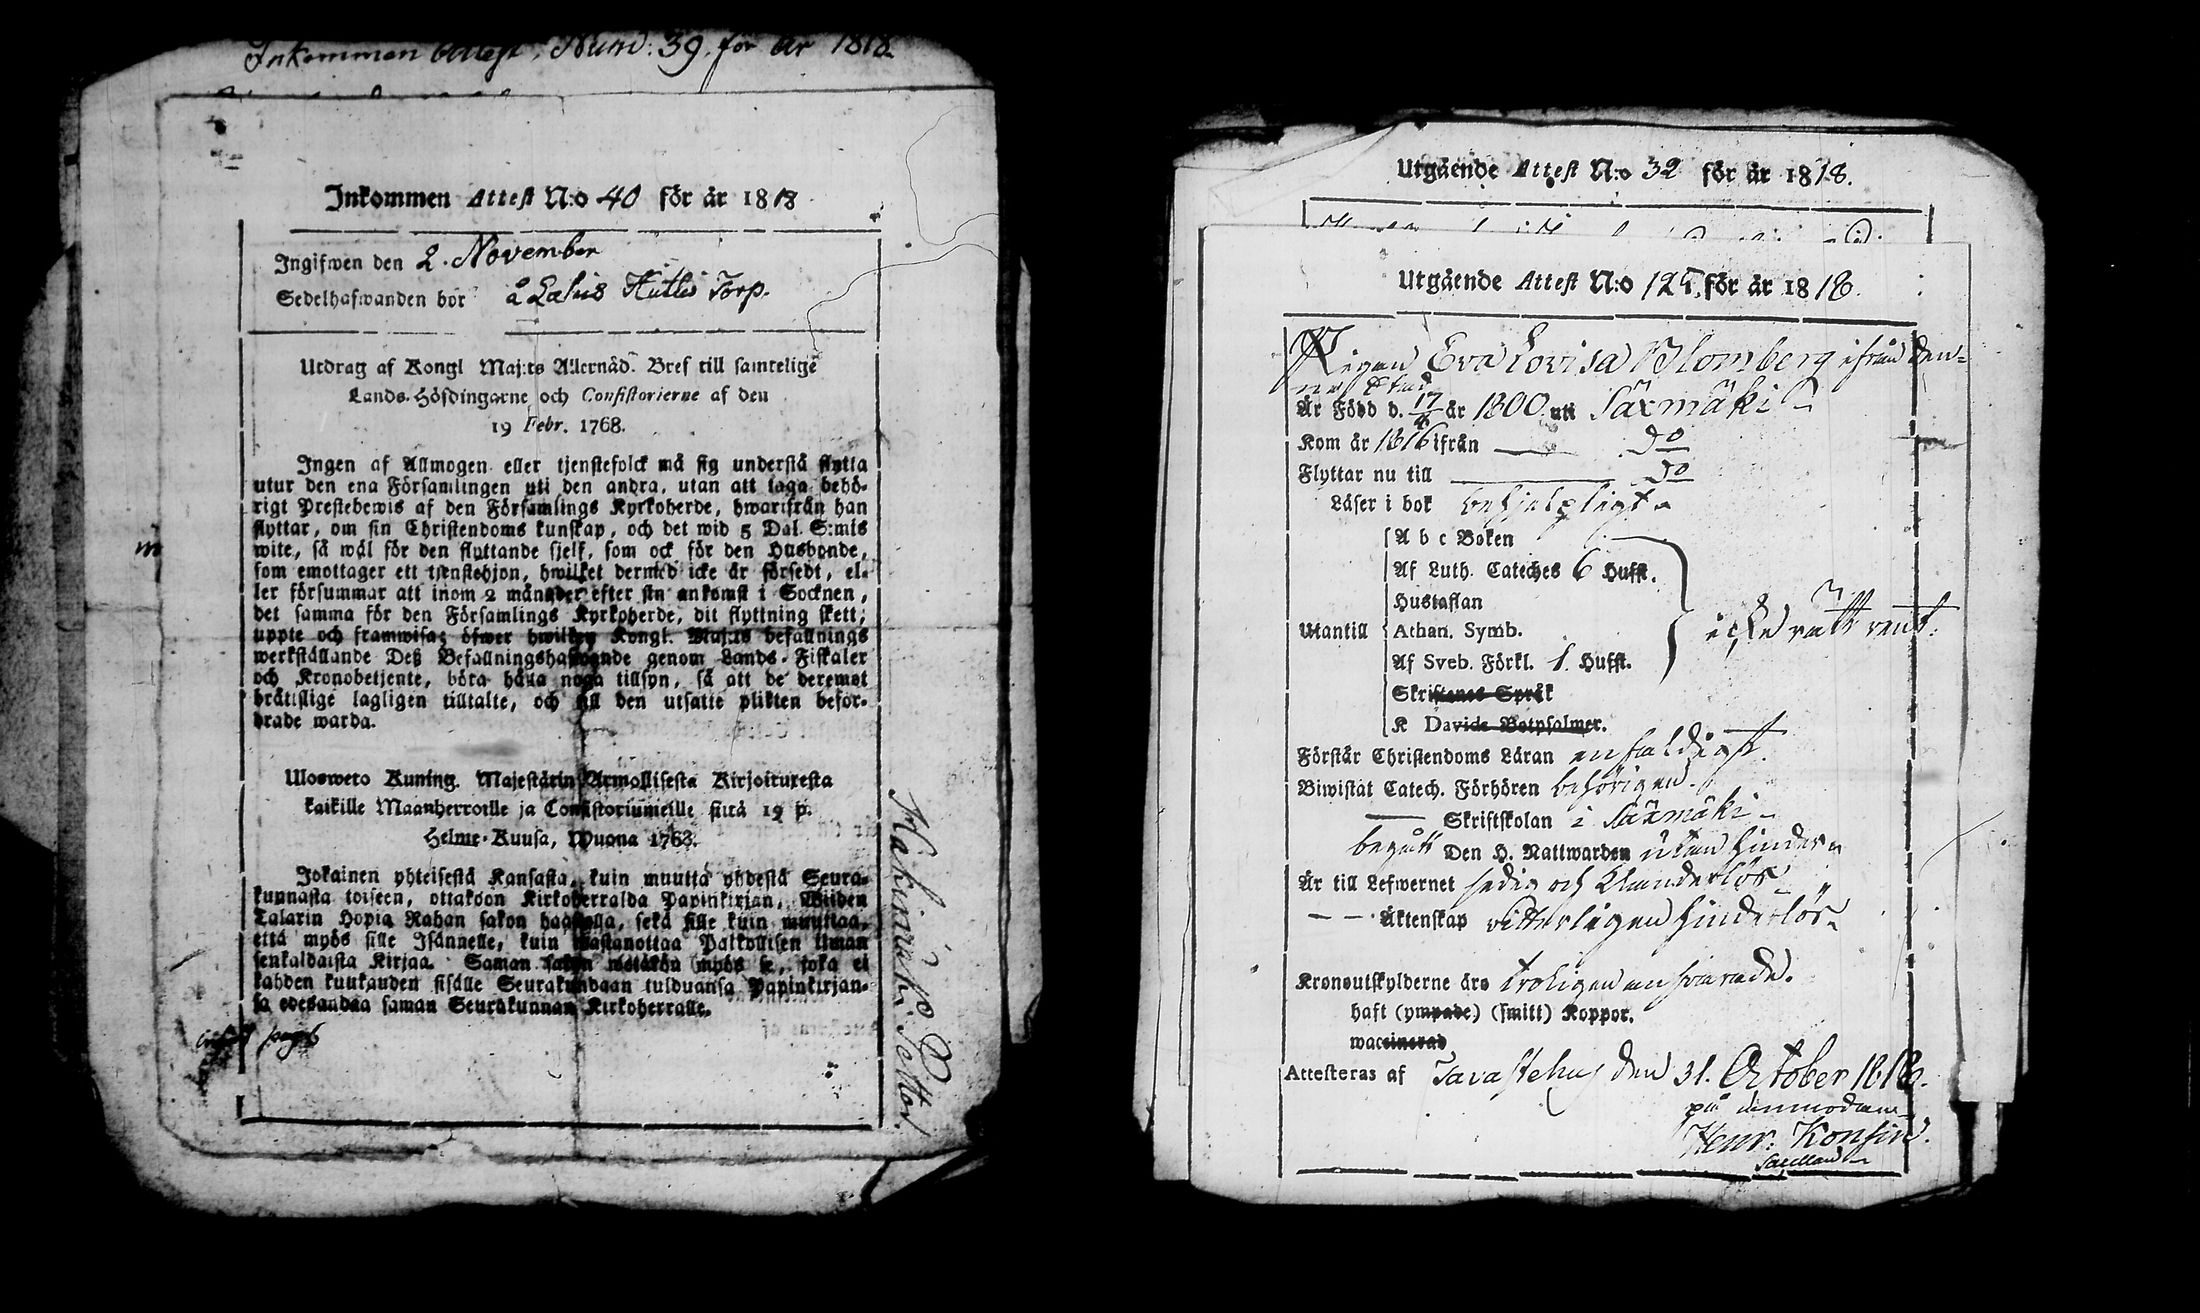 Inkommen Attest, Num: 39. för år 1818.
Inkommen Attest N:o 40 för år 1818
Ingifwen den 2. November
Sedelhafwanden bor å Torp.
Utdrag af Kongl Maj:ts Allernåd. Bref till samtelige
Lands-Höfdingarne och Consistorierne af den
19 Febr. 1768.
Ingen af Allmogen eller tjenstefolck må sig understå flytta
utur den ena Församlingen uti den andra, utan att taga behö-
rigt Prestebewis af den Församlings Kyrkoherde, hwarifrån han
flyttar, om sin Christendoms kunskap, och det wid 5 Dal. S:mts
wite, så wäl för den flyttande sjelf, som ock för den Husbonde,
som emottager ett tjenstehjon, hwilket dermed icke är försedt, el-
ler försummar att inom 2 månader efter sin ankomst i Socknen,
det samma för den Församlings Kyrkoherde, dit flyttning skett,
uppte och framwisa; öfwer hwilken Kongl. Maj:ts befallnings
werkställande Deß Befallningshafwande genom Lands-Fiskaler
och Kronobetjente, böra hålla noga tillsyn, så att de deremot
brättslige lagligen tilltalte, och till den utsatte plikten befor-
drade warda.
Ulosweto Kuning. Majestätin Armollisesta Kirjoituxesta
kaikille Maanherroille ja Consistoriumeille siitä 19 p.
Helme-Kuusa, Wuona 1768.
Jokainen yhteisestä Kansasta, kuin muuttá yhdestä Seura-
kunnasta toiseen, ottakoon Kirkoherralda Papinkirjan, Wiiden
Talarin Hopia Rahan sakon haastolla, sekä sille kuin muuttaa,
että myös sille Isännelle, kuin wastanottaa Palkollisen ilman
senkaldaista Kirjaa. Saman sakon wetäkön myös se, joka ei
kahden kuukauden sisälle Seurakundaan tulduansa Papinkirjan-
sa edesandaa saman Seurakunnan Kirkoherralle.
Utgående Attest N:o 32 för år 1818.
Utgående Attest N:o för år 1818.
Pigan Eva Lovisa Blomberg ifrån den-
ne Stad
Är Född d. 17 år 1800 uti Säxmäki
Kom år 1816 ifrån do
Flyttar nu till do
Läser i bok behjelpligt
A b c Boken
Af Luth. Cateches 6 Hufst.
Hustaflan
Utantill Athan. Symb. icke rätt rent.
Af Sveb. Förkl. 1. Hufst.
Skriftenes Språk
K Davids Botpsalmer.
Förstår Christendoms Läran enfaldigt.
Biwistat Catech. Förhören behörigen.
Skriftskolan i Säxmäki
begått Den H. Nattwarden utan hinder
Är till Lefwernet sedig och klanderlös
Äktenskap witterligen hinderlös
Kronoutskylderne äro troligen ansvarade.
haft (ympade) (smitt) Koppor.
waccinerad
Attesteras af Tavastehus den 31. October 1818.
på
Henr: